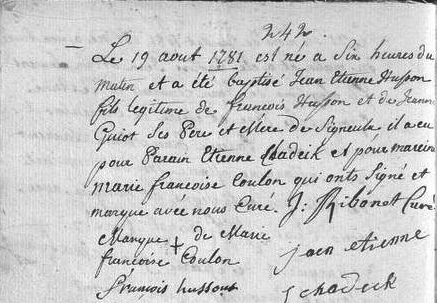 242
Le 19 aout 1781 est né a Six heures du
Matin et a été baptisé Jean Etienne Husson
fils legitime de francois Husson et de Jeanne
Guiot Ses Pere et Mere de Signeulx il a eu
pour Parain Etienne Chadeik et pour mareine
marie francoise Coulon qui onts Signé et
marque avec nous Curé. J: Ribonet Curé
Marque + de Marie
francoise Coulon
jaen etienne
francois hussont
chadeck